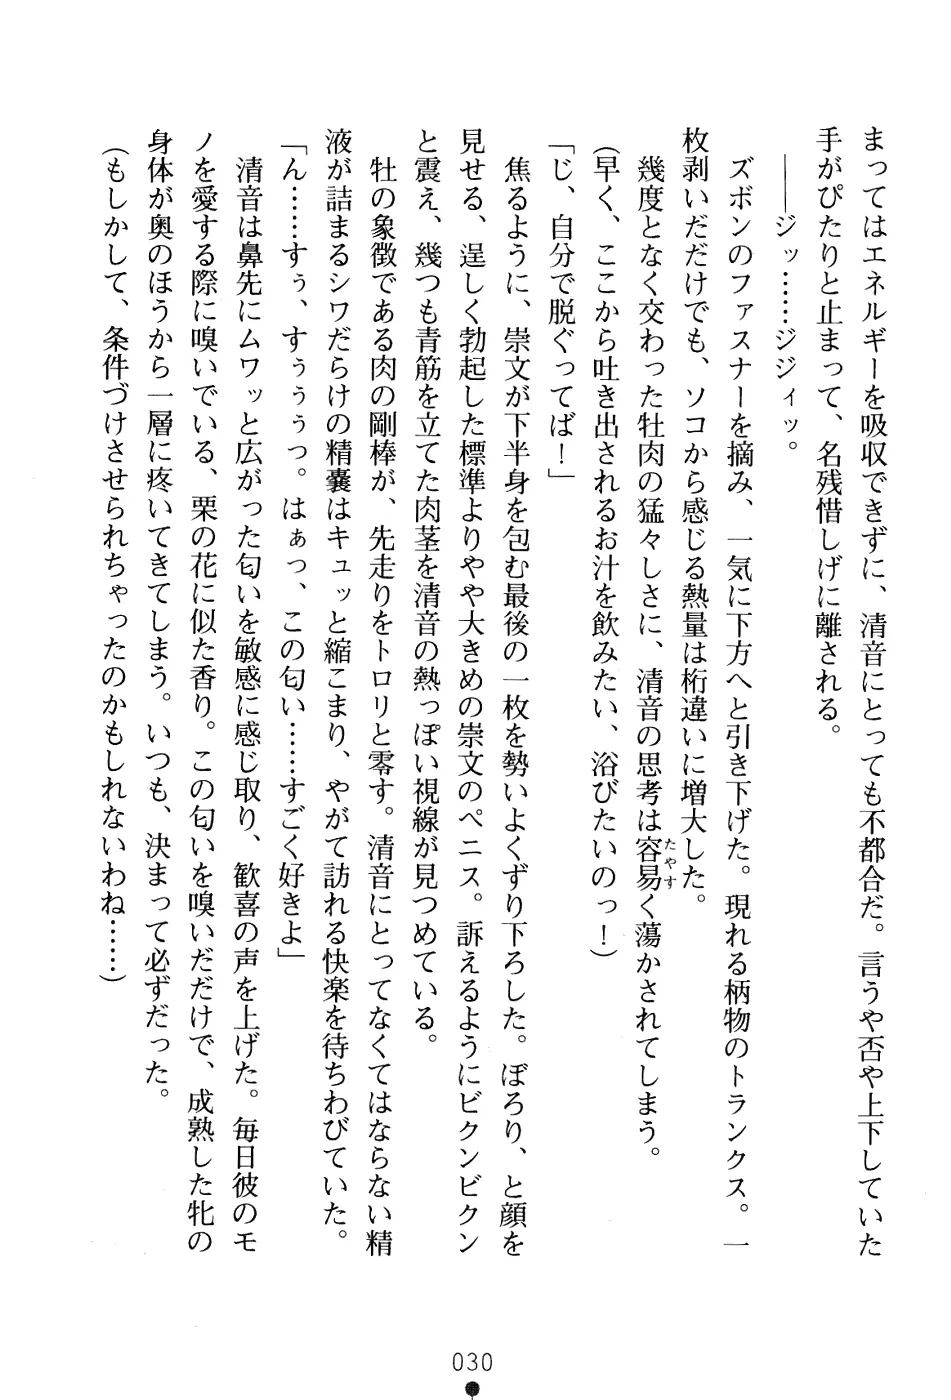 まってはエネルギーを吸収できずに、清音にとっても不都合だ。言うや否や上下していた
手がぴたりと止まって、名残惜しげに離される。
――ジッ……ジジィッ。
ズボンのファスナーを摘み、一気に下方へと引き下げた。現れる柄物のトランクス。一
枚剥いだだけでも、ソコから感じる熱量は桁違いに増大した。
幾度となく交わった牡肉の猛々しさに、清音の思考は容易く蕩かされてしまう。
たやす
(早く、ここから吐き出されるお汁を飲みたい、浴びたいのっ!)
「じ、自分で脱ぐってば!」
焦るように、崇文が下半身を包む最後の一枚を勢いよくずり下ろした。ぼろり、と顔を
見せる、逞しく勃起した標準よりやや大きめの崇文のペニス。訴えるようにビクンビクン
と震え、幾つも青筋を立てた肉茎を清音の熱っぽい視線が見つめている。
牡の象徴である肉の剛棒が、先走りをトロリと零す。清音にとってなくてはならない精
液が詰まるシワだらけの精嚢はキュッと縮こまり、やがて訪れる快楽を待ちわびていた。
「ん……すぅ、すぅぅぅっ。はぁっ、この匂い……すごく好きよ」
清音は鼻先にムワッと広がった匂いを敏感に感じ取り、歓喜の声を上げた。毎日彼のモ
ノを愛する際に嗅いでいる、栗の花に似た香り。この匂いを嗅いだだけで、成熟した牝の
身体が奥のほうから一層に疼いてきてしまう。いつも、決まって必ずだった。
(もしかして、条件づけさせられちゃったのかもしれないわね……)
030